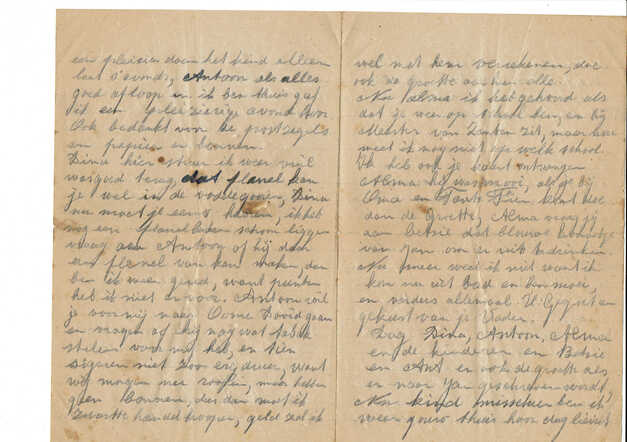 een plezier doen het kind alleen
laat s'avonds, Antoon als alles
goed afloop en ik ben thuis geef
ik een plezierige avond hoor.
Ook bedankt voor de postzegels
en papier en
Dina hier stuur ik weer vuil
wasgoed terug, dat flanel kan
je wel in de voddegooien, Dina
nu moet je eens kijken, ik heb
nog een flanel schoon liggen
vraag aan Antoon of hij daar
een flanel van kan maken, dan
ben ik weer gered, want punten
heb ik niet ervoor. Antoon wil
je voor mij naar Oome David gaan
en vragen of hij nog wat tabak
voor mij het, en tien
sigaren niet zoo erg duur, want
wij mogen nu rooken, maar hebben
geen bonnen, dus dan moet ik
zwarte handel koopen, geld zal ik
wel met hem verrekenen, doe
ook de groete aan hen alle.
Nu Alma ik heb gehoord als
dat je weer op school ben, en bij
Meester van Zanten zit, maar hoe
weet ik nog niet op welk school.
Ik heb ook je kaart ontvangen
Alma hij was mooi, als je bij
Oma en Tante Fien komt doe
dan de groete, Alma vraag jij
aan Betsie dat blauwe
van Jan om er uit te drinken.
Nu meer weet ik niet want ik
kom nu uit bad en ben moei,
en verders allemaal U! Gegroet en
gekust van je Vader.
Dag Dina, Antoon, Alma
en de kinderen en Betsie
en Ant en ook de groete als
er naar Jan geschreven wordt.
Nu kind misschien ben ik
weer gauw thuis hoor dag lievert